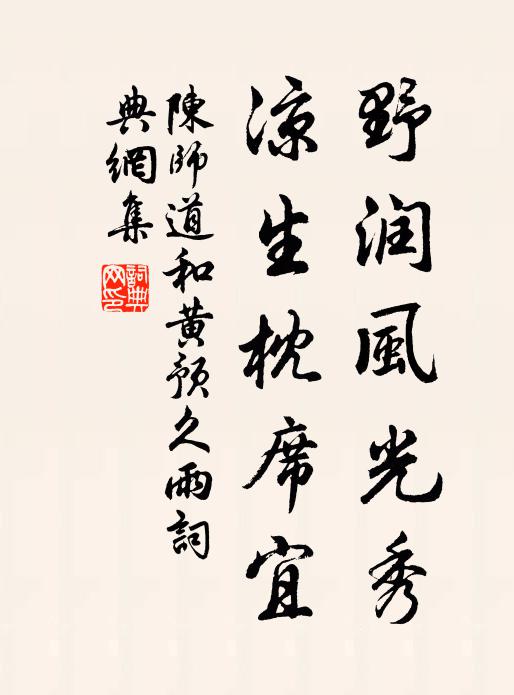 野润風光秀
凉生枕席宜
陳師道和黄预久雨詞
典網集
詞典网印